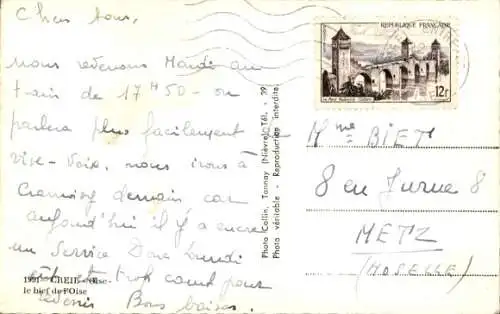 Chers tous,
nous revenons Mardi au
train de 17H50 - on
parlera plus facilement
vive-voix, nous irons à
demain car
aujourd'hui il y a encore
un Service Donc Lundi
est trop court pour
revenir Bons baisers.
1991 - CREIL - Oise -
le bief de l'Oise
Photo Collin, Tannay (Nièvre) Tél. : 29
Photo véritable - Reproduction interdite.
REPUBLIQUE FRANÇAISE
12f
Mme BIET
8 en Jurue 8
METZ
(MOSELLE)